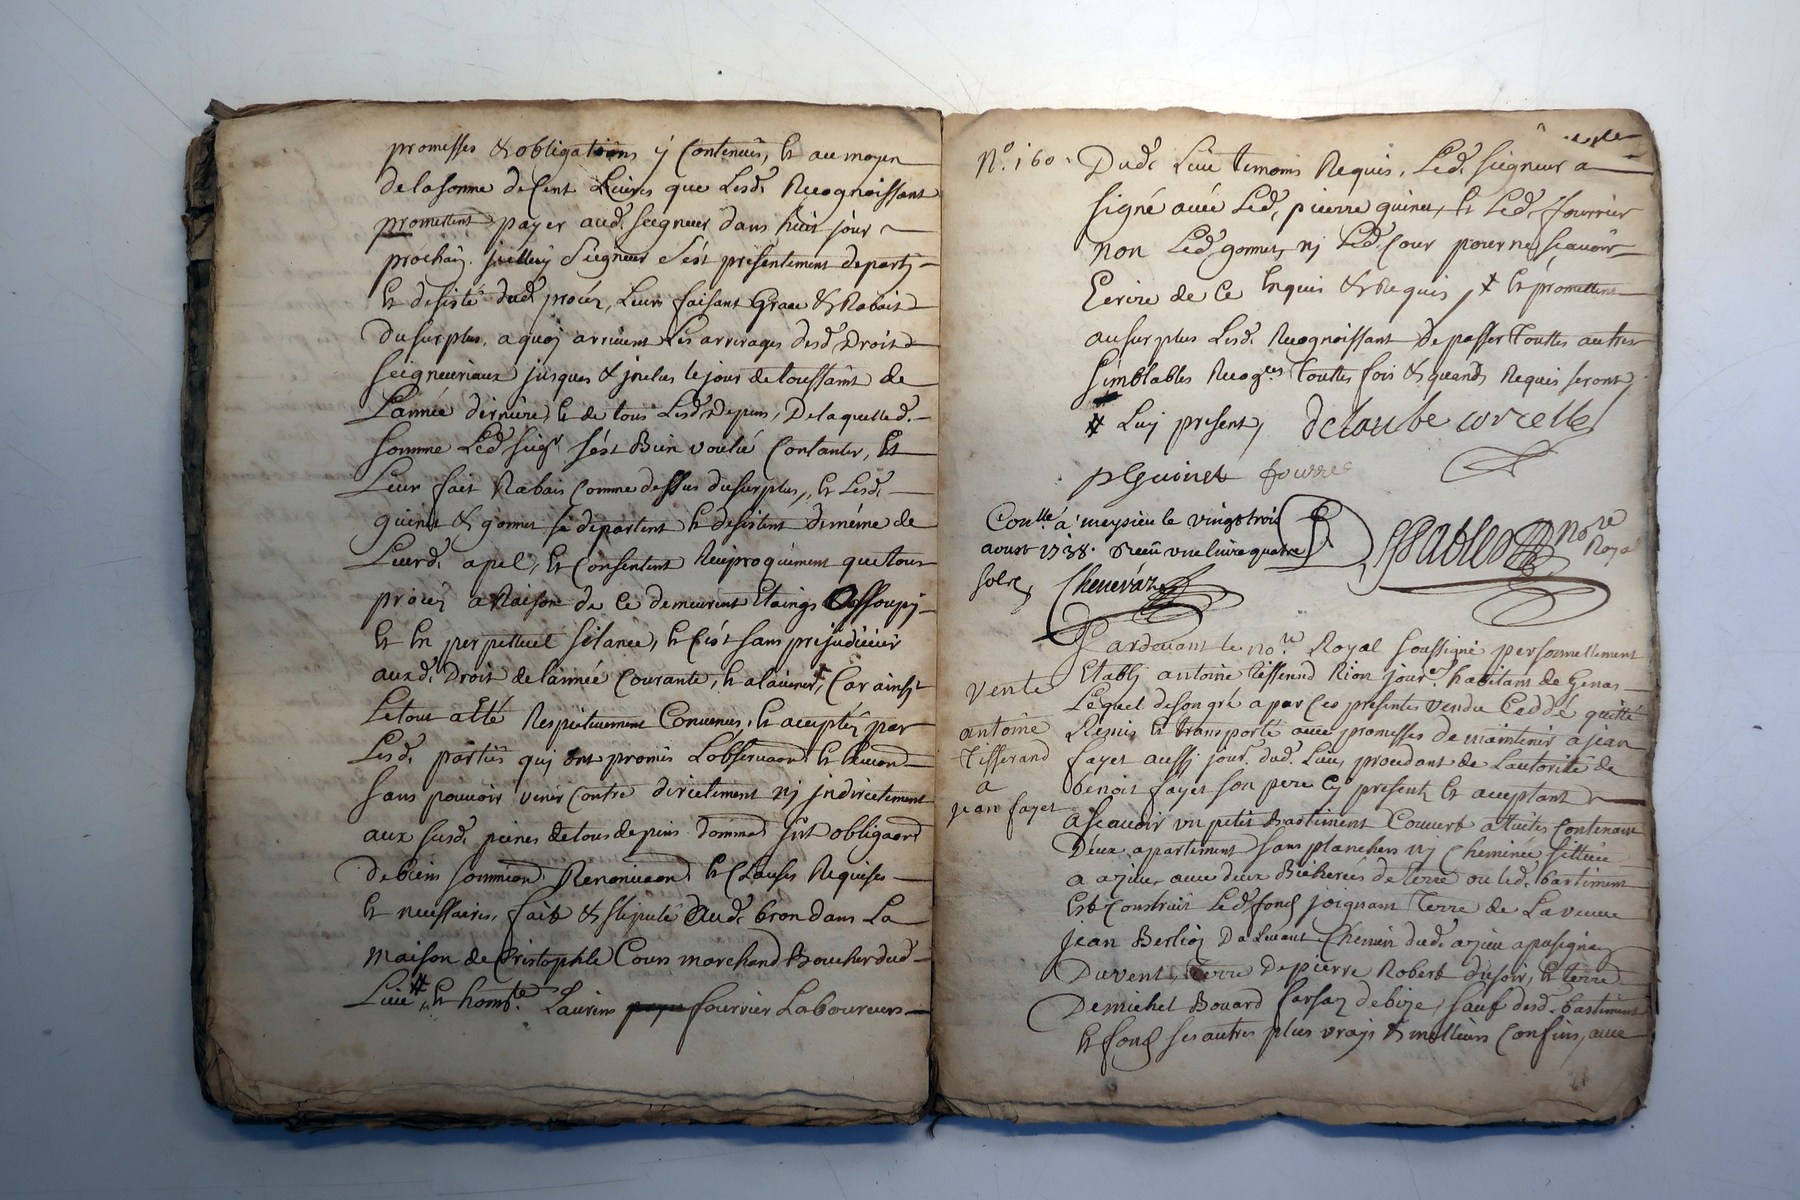 promesses & obligations y Contenues, et au moyen
de la somme de Cent Livres que Lesd. Recognoissant
promettent payer aud. seigneur dans huit jour
prochain. Seigneur s'est présentement departy
et desisté dud. procés, Leur faisant Grace & Rabait
du surplus, a quoy arrivent Les arrerages desd. Droit
seigneuriaux jusques & jnclus le jour de toussaint de
L'année derniere, et de tous Lesd. Depens, De laquelle d.
somme Led. seigr. s'est Bien voulu Contanter, Et
Leur fait Rabais Comme dessus du surplus, et Lesd.
guinet & gonnet se departent et desistent de même de
Leurd. apel, et Consentent Reciproquement que tous
procés a Raison de Ce demeurent Etaings & assoupy
et En perpetuel silance, et C'est sans prejudicier
auxd. Droit de l'année Courante, et a l'avenir, Car ainsy
Le tout a Eté Respectivement Convenus, et acceptés par
Lesd. parties qui ont promis L'observaon et
sans pouvoir venir Contre directement ny jndirectement
aux susd. peines de tous depens dommad. sus obligaond
de biens soumiond. Renonciaond et Clauses Requises
et necessaires, fait & stipulé Aud. bron dans La
maison de Christophle Cours marchand Boucher dud.
Lieu # et homte. Laurens fourrier Laboureur
No. 160. Dud. Lieu temoins Requis, Led. seigneur a
signé avec Led. pierre guinet, et Led. fourrier
non Led. gonnet, ny Led. Cour pour ne scavoir
Ecrire de Ce Enquis & Requis, # et promettent
au surplus Lesd. Recognoissant De passer Touttes autres
semblables Recoges. Touttes fois & quand Requis seront
# Luy present, Delaube corcelle
p Guinet fourrier
Conlle. à meysieu le vingt trois
aoust 1738. Receu une livre quatre
sols
Chenevaz
nore Royal
Pardevant le nore. Royal soussigné personnellement
Etably antoine Tifferand Rion jour. habitant de Genas
vente
Lequel de son gré a par Ces presentes vendu Ceddé quitté
antoine
Remis et transporté avec promesses de maintenir a jean
Tifferand
fayet aussi jour. dud. Lieu, procedant de L'autorité de
a
benoit fayet son pere Cy present, et acceptant
jean fayet
a scavoir un petit Bastiment Couvert a tuiles Contenant
Deux appartement sans planchers ny Cheminée, sittuée
a azieu avec deux Bicherées de terre ou led. bastiment
Est Construit Led. fond joignant Terre de La veuve
jean Berlioz Du Levant Chemin dud. azieu a pusignan
Du vent, Terre De pierre Robert du soir, et terre
De michel Bouard de bize, sauf desd. bastiment
et fond ses autres plus vrays & meillieurs Confins, avec